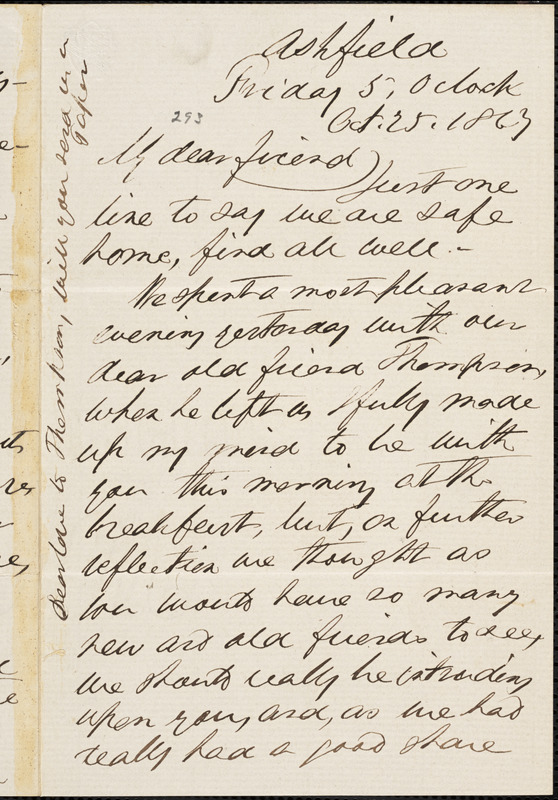 Ashfield
Friday 5, O clock
Oct. 25. 1867
293
My dear friend
Just one
line to say we are safe
home, find all well. -
We spent a most pleasant
evening yesterday with our
dear old friend Thompson,
when he left us I fully made
up my mind to be with
you this morning at the
breakfast, but, on further
reflection we thought as
you would have so many
new and old friends to see,
we should really be intruding
upon you, and, as we had
really had a good share
Dear love to Thompson, will you send him a
paper